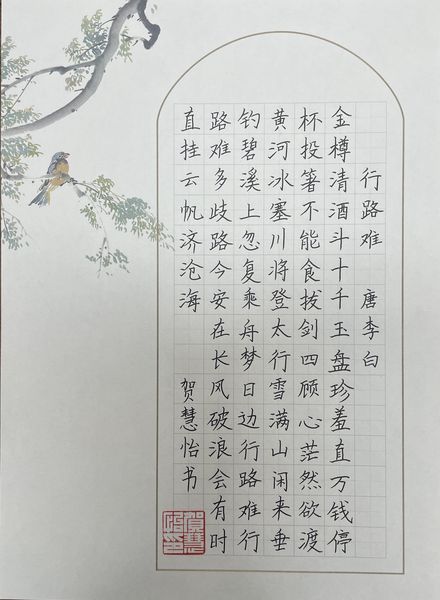 行路难 唐李白
金樽清酒斗十千玉盘珍羞直万钱停
杯投箸不能食拔剑四顾心茫然欲渡
黄河冰塞川将登太行雪满山闲来垂
钓碧溪上忽复乘舟梦日边行路难行
路难多歧路今安在长风破浪会有时
直挂云帆济沧海 贺慧怡书
賀慧
怡印